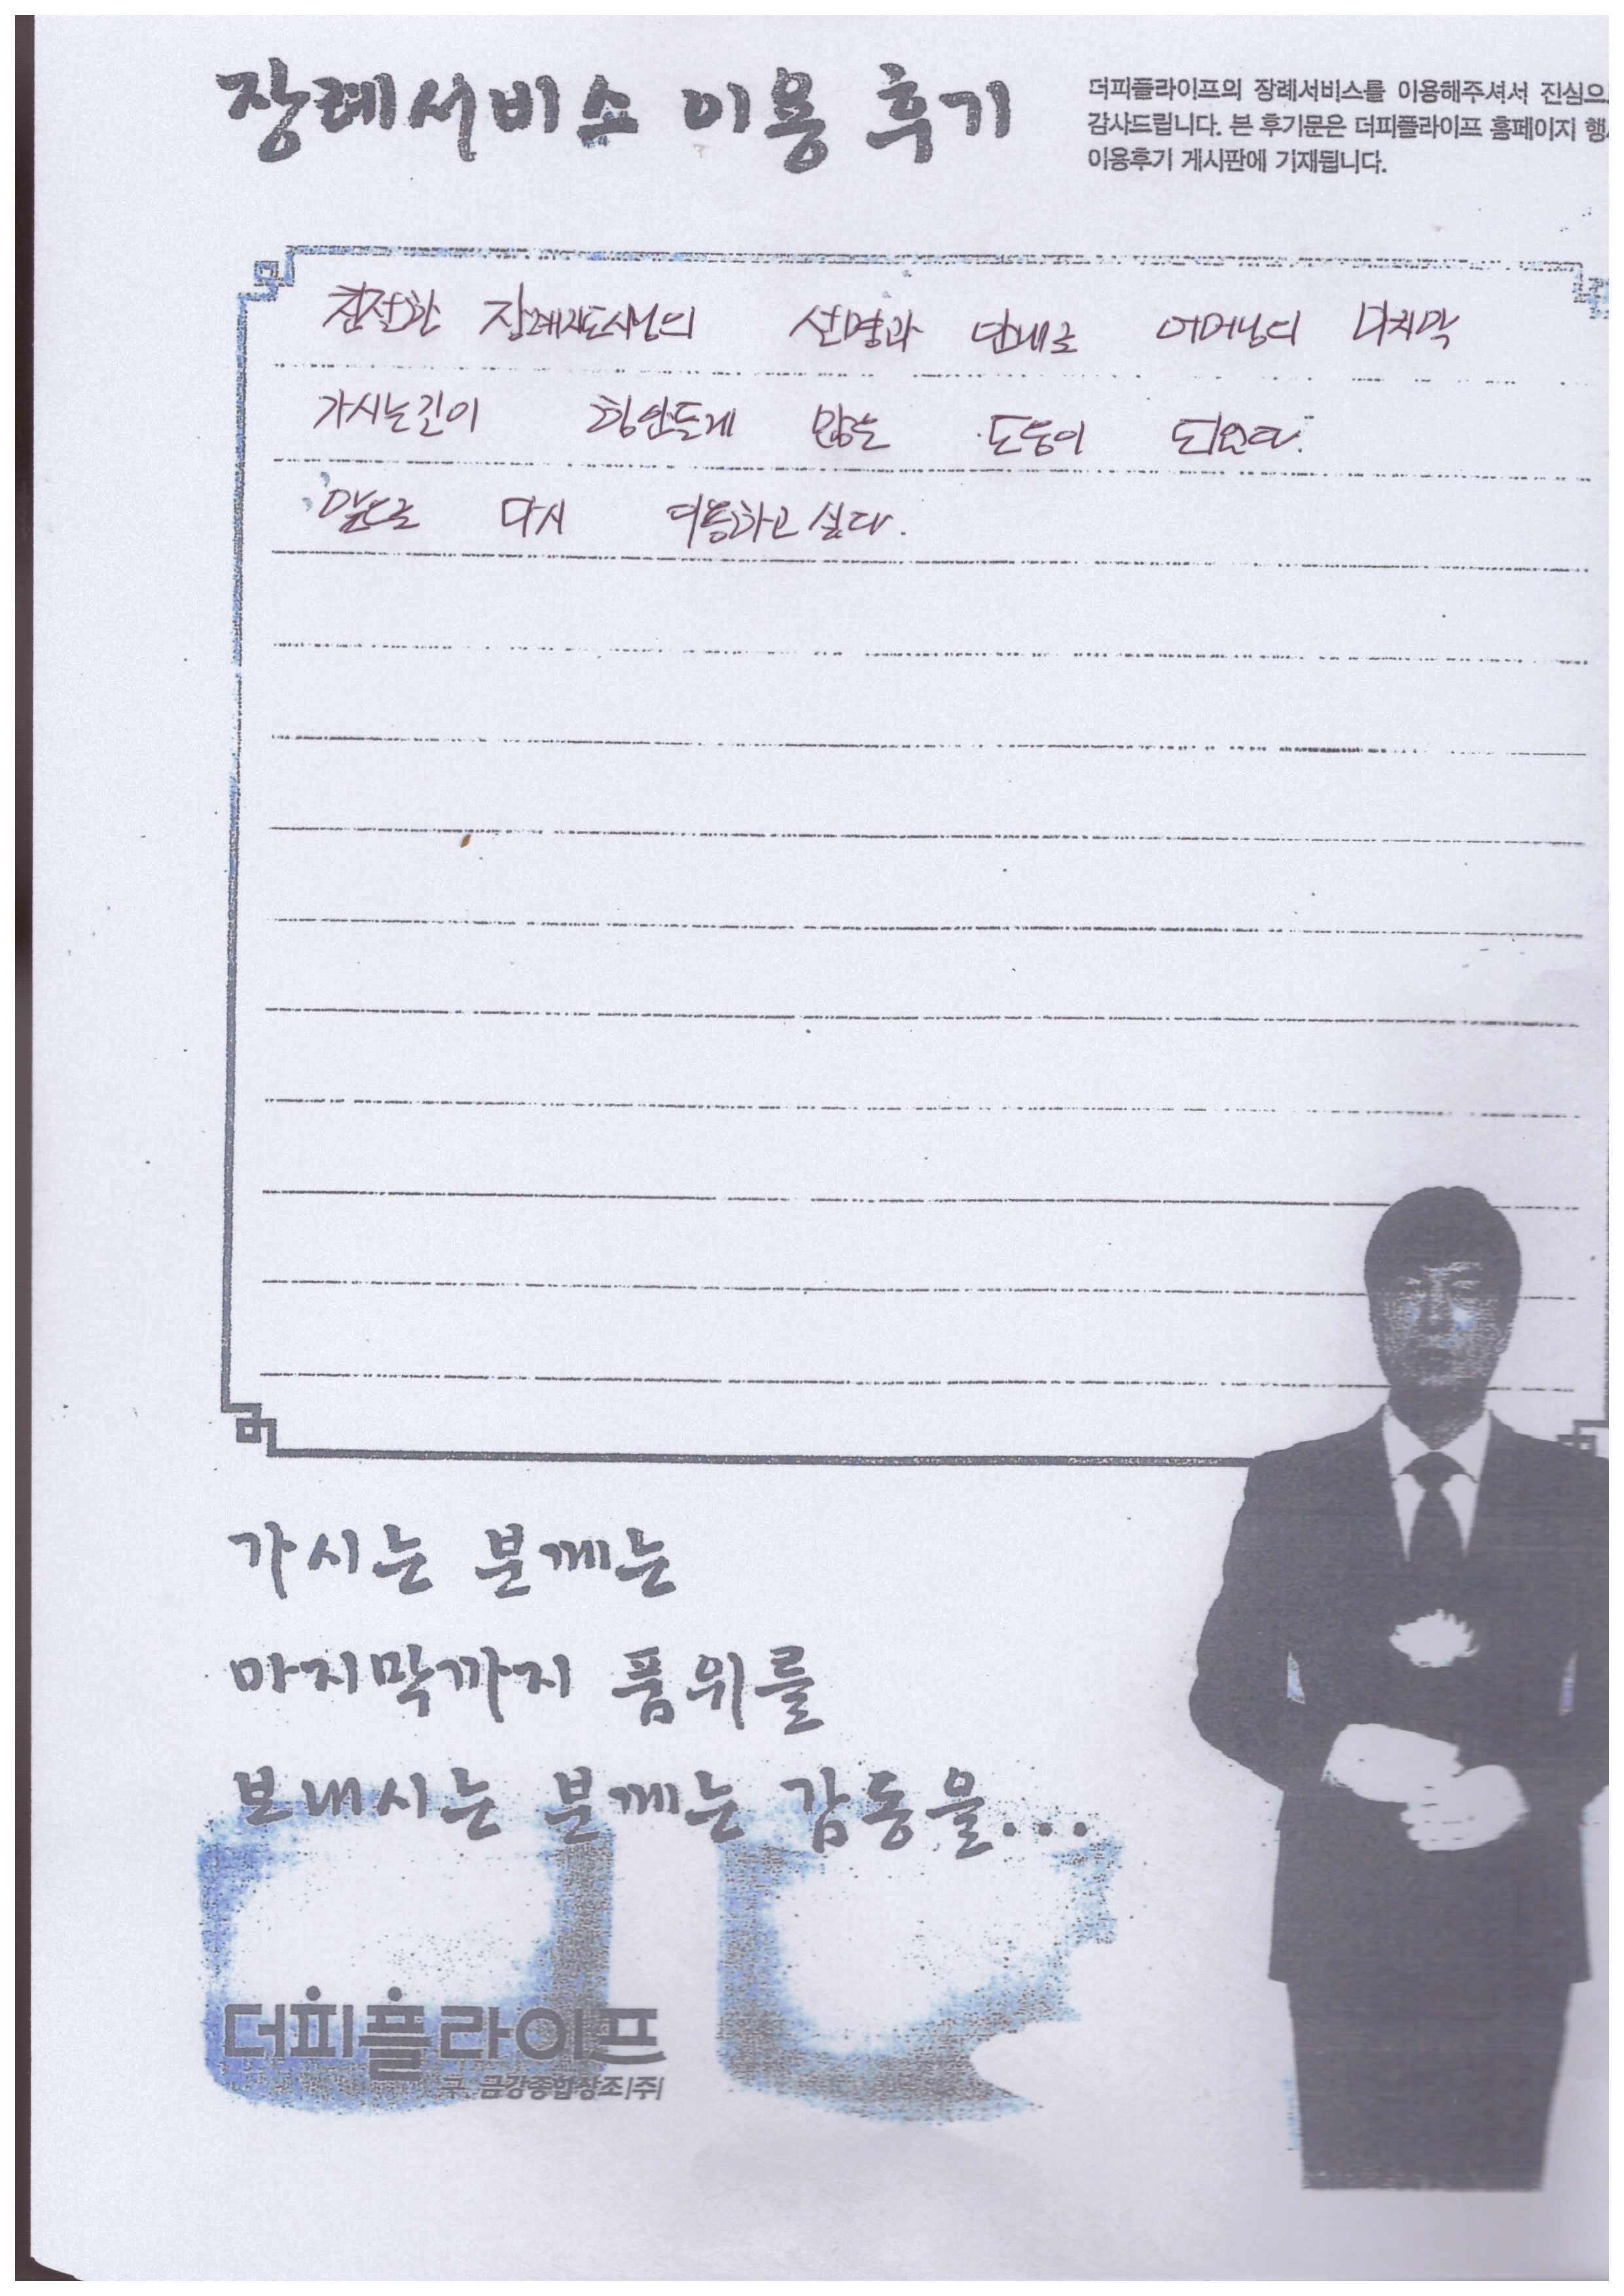 장례서비스 이용 후기
더피플라이프의 장례서비스를 이용해주셔서 진심으
감사드립니다. 본 후기문은 더피플라이프 홈페이지 행
이용후기 게시판에 기재됩니다.
친절한 장례지도사님의 설명과 안내로 어머님의 마지막
가시는길이 힘안들게 많은 도움이 되었다.
앞으로 다시 이용하고 싶다.
가시는 분께는
마지막까지 품위를
보내시는 분께는 감동을...
더피플라이프
구. 금강종합상조(주)